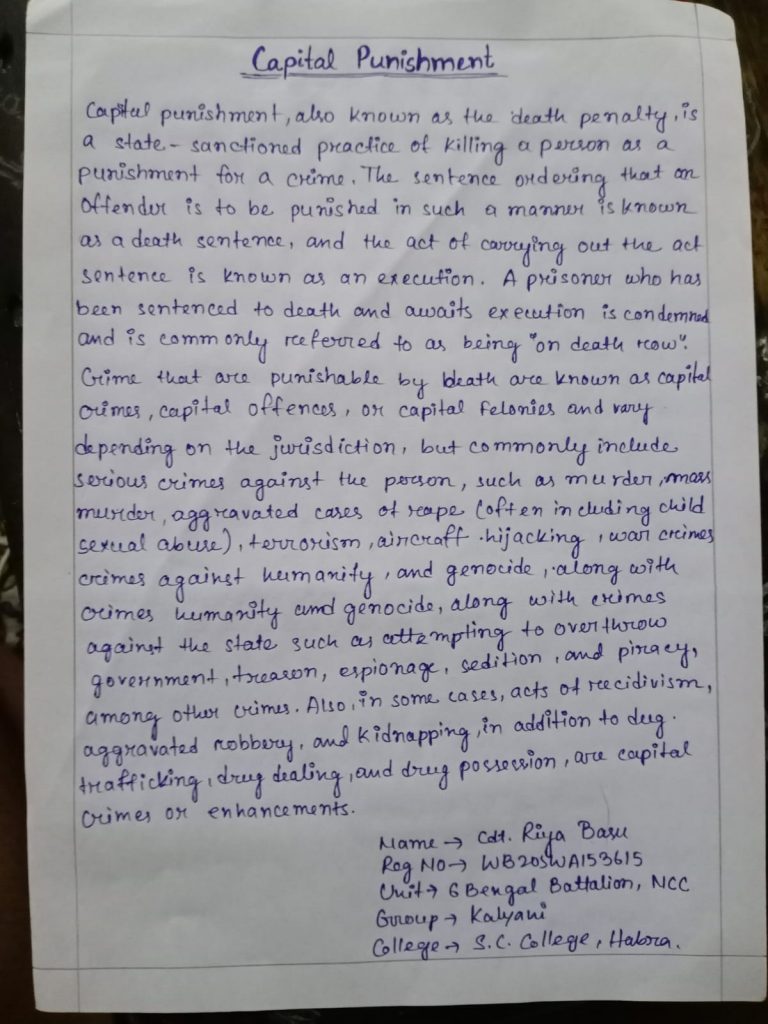 Capital Punishment
Capital punishment, also known as the death penalty, is
a state-sanctioned practice of killing a person as a
punishment for a crime. The sentence ordering that an
offender is to be punished in such a manner is known
as a death sentence, and the act of carrying out the act
sentence is known as an execution. A prisoner who has
been sentenced to death and awaits execution is condemned
and is commonly referred to as being "on death row".
Crime that are punishable by death are known as capital
crimes, capital offences, or capital felonies and vary
depending on the jurisdiction, but commonly include
serious crimes against the person, such as murder, mass
murder, aggravated cases of rape (often including child
sexual abuse), terrorism, aircraft hijacking, war crimes
crimes against humanity, and genocide, along with
crimes humanity and genocide, along with crimes
against the state such as attempting to overthrow
government, treason, espionage, sedition, and piracy,
among other crimes. Also, in some cases, acts of recidivism,
aggravated robbery, and kidnapping, in addition to dug.
trafficking, drug dealing, and drug possession, are capital
crimes or enhancements.
Name → Cdt. Riya Basu
Reg No → WB20SWA153615
Unit → 6 Bengal Battalion, NCC
Group → Kalyani
College → S.C. College, Habra.